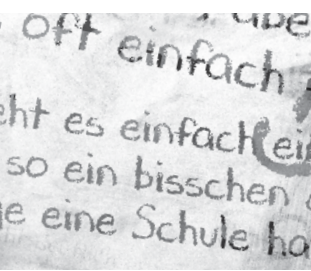 oft einfach
es einfach
so ein bisschen
eine Schule